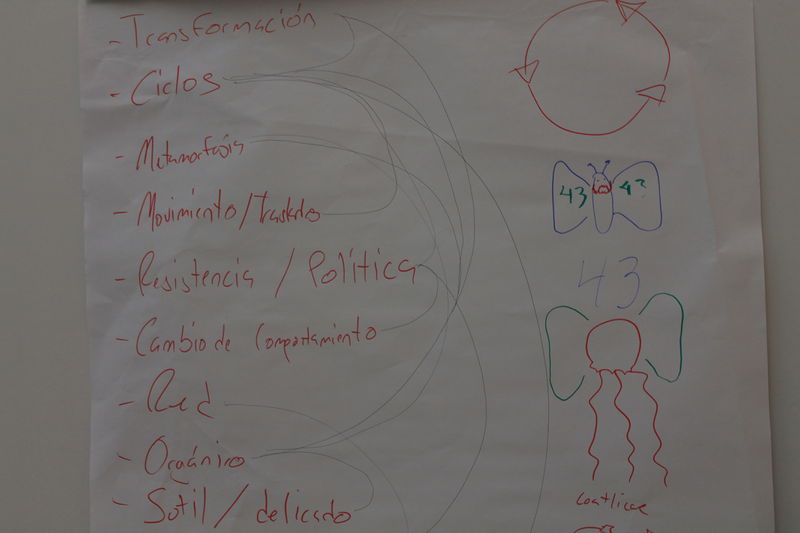 - Transformación
- Ciclos
- Metamorfosis
- Movimiento/traslado
- Resistencia / Política
- Cambio de comportamiento
- Red
- Orgánico
- Sutil / delicado
43 43
43
coatlicue